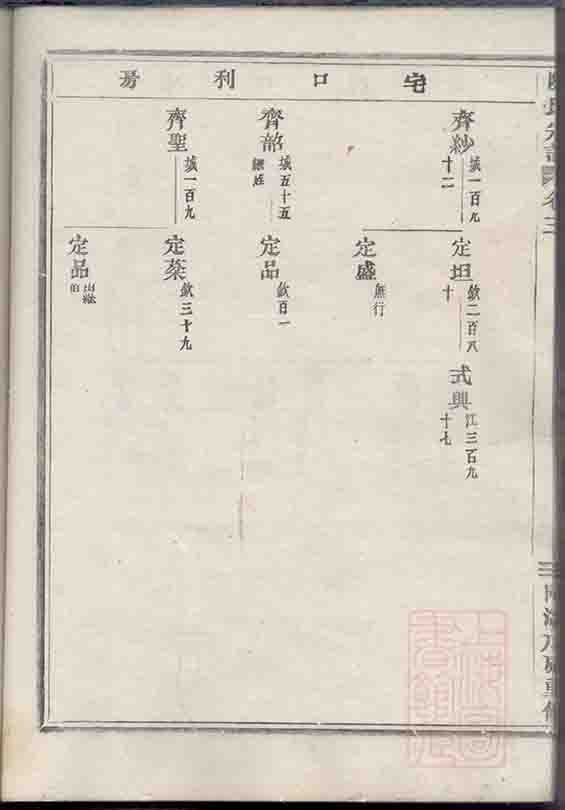 宅口利房
齊紗 城一百九十二
定坦 欽二百八十
式興 江三百九十七
定盛 無行
齊韶 城五十五 繼姪
定品 欽百一
齊聖 城一百九
定棻 欽三十九
定品 出繼伯